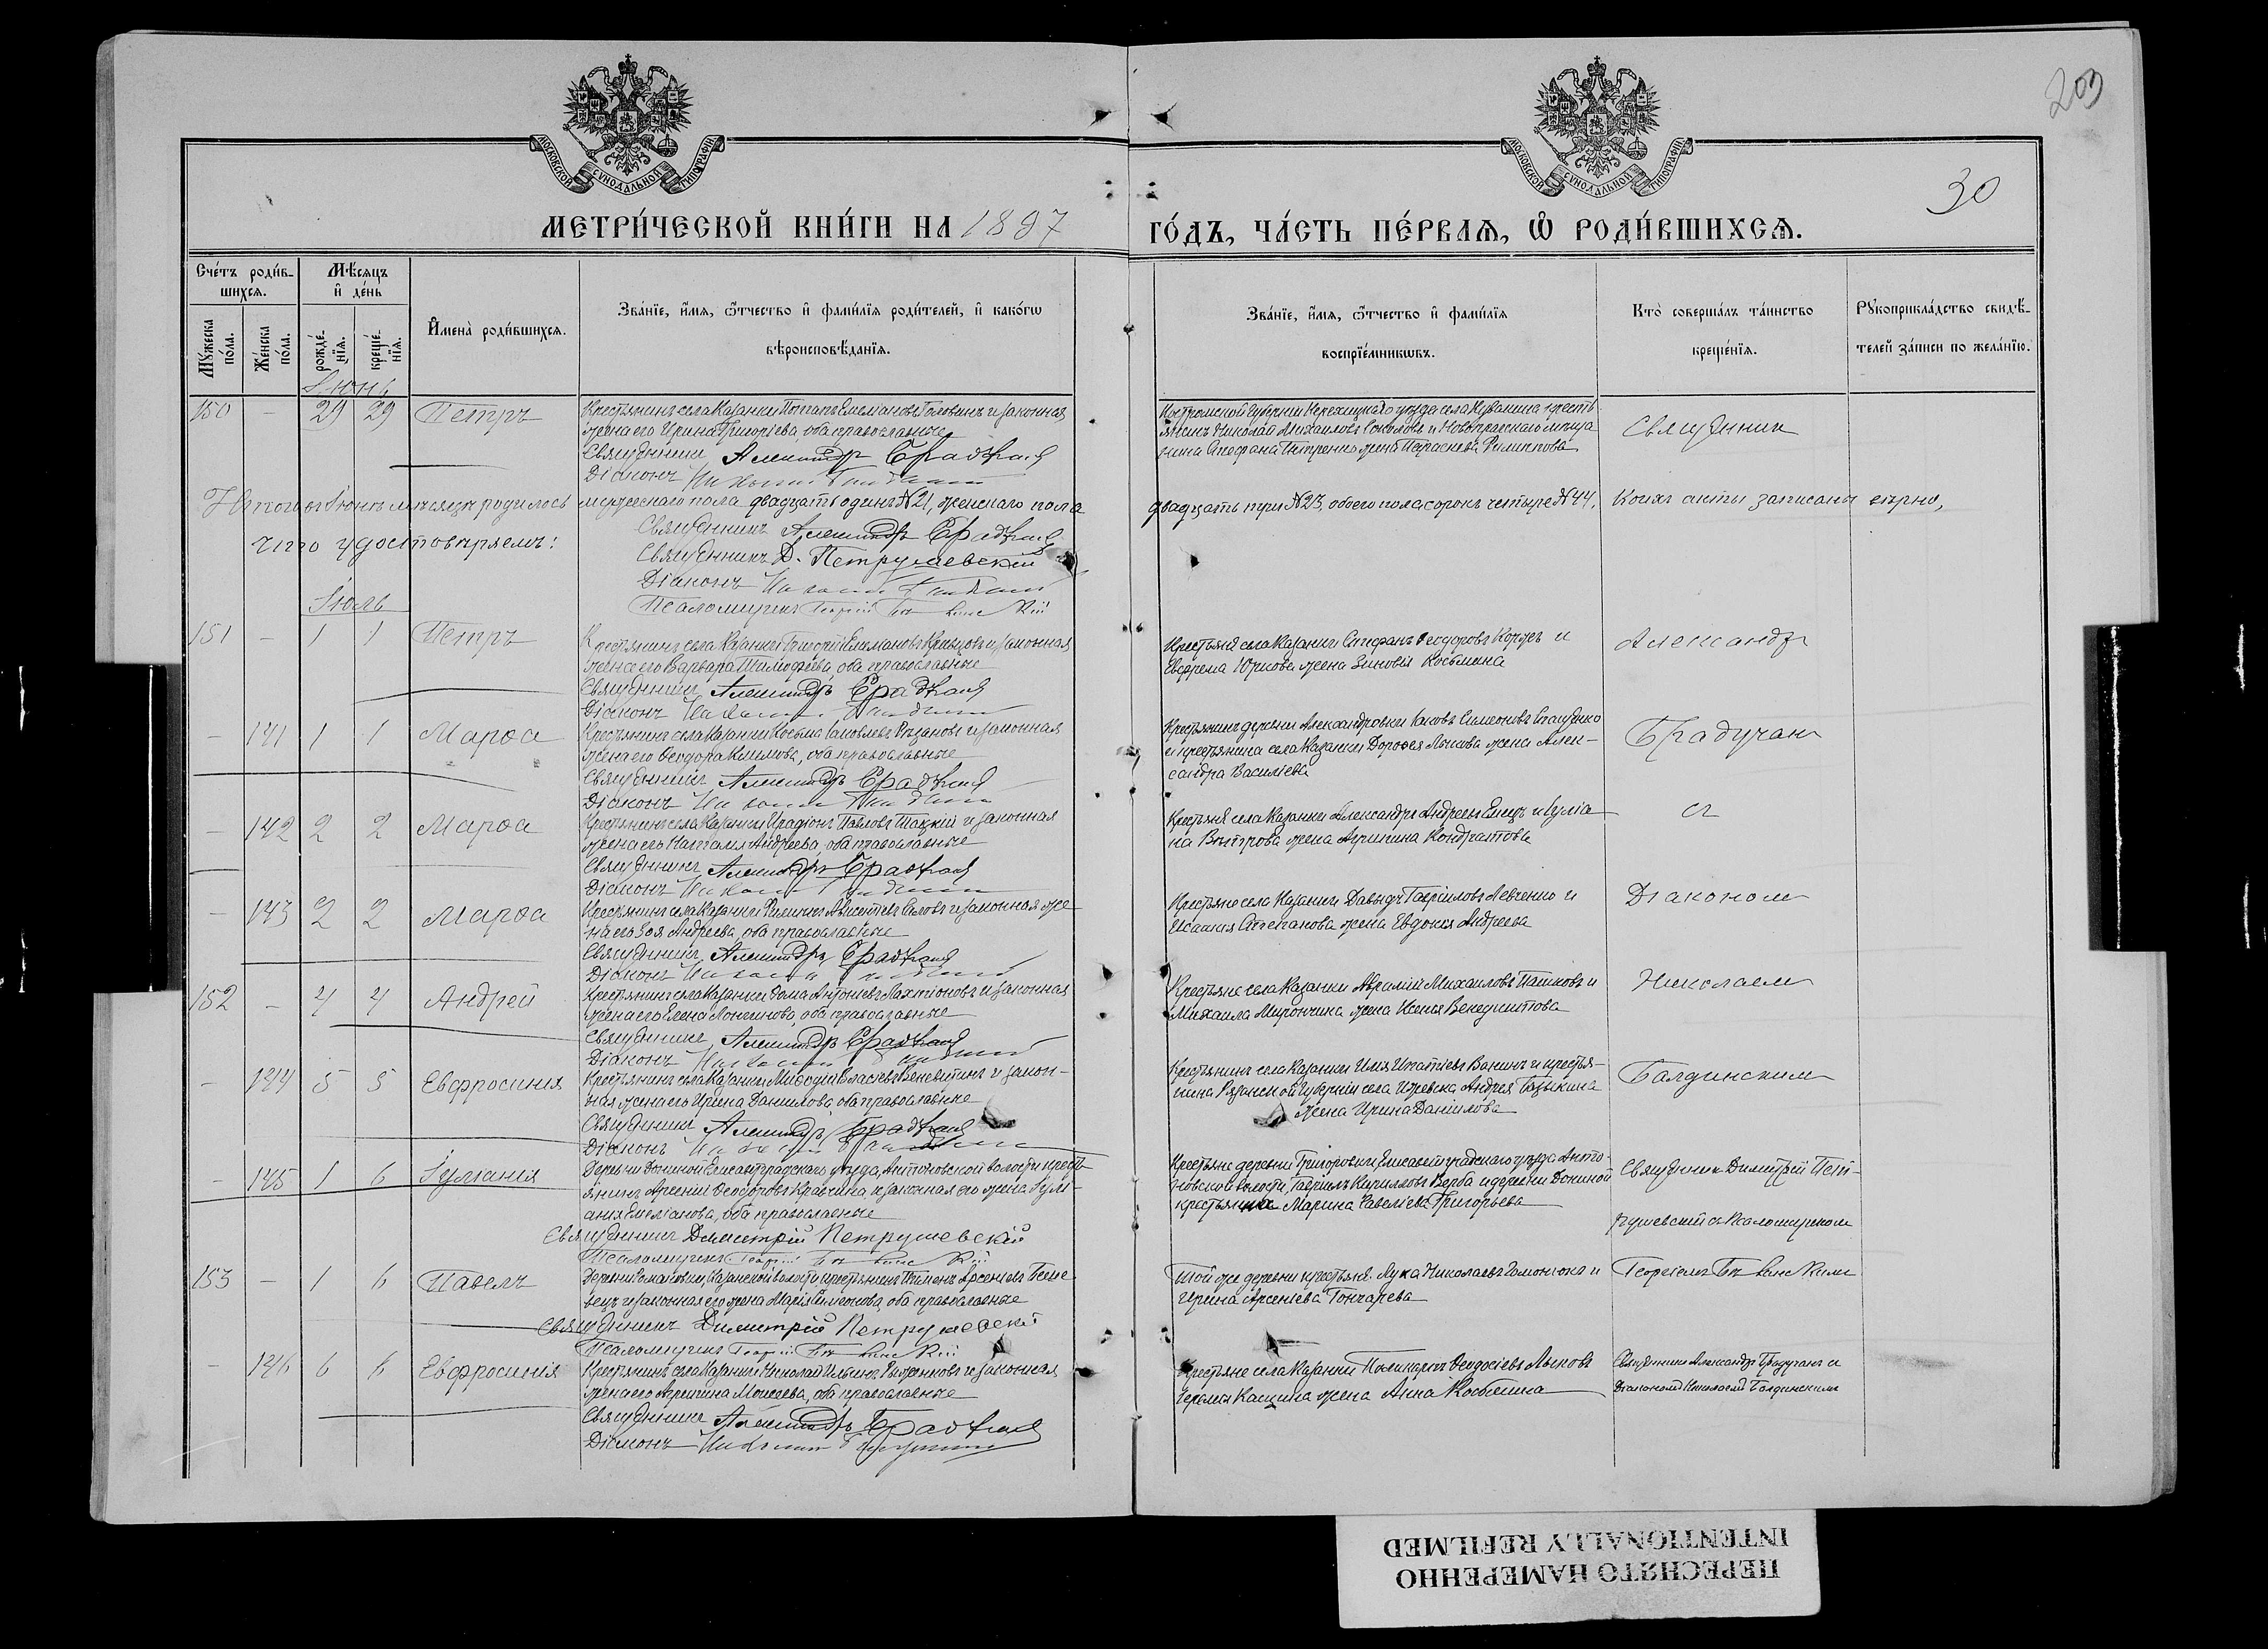 209
30
МОСКОВСКОЙ СѴНОДАЛЬНОЙ ТИПОГРАФІИ
МОСКОВСКОЙ СѴНОДАЛЬНОЙ ТИПОГРАФІИ
МЕТРИ́ЧЕСКОЙ КНИ́ГИ НА 1897 ГО́ДЪ, ЧА́СТЬ ПЕ́РВАѦ, Ѡ҆ РОДИ́ВШИХСѦ.
Сче́тъ роди́в-
шихсѧ.
Мѣ́сѧцъ
и҆ де́нь
Мꙋ́жеска по́ла.
Же́нска по́ла.
рожде́-
нїѧ.
креще́-
нїѧ.
И҆мена̀ роди́вшихсѧ.
Зва́нїе, и҆́мѧ, ѻ҆́тчество и҆ фамѝлїѧ роди́телей, и҆ како́гѡ
вѣроисповѣ́данїѧ.
Зва́нїе, и҆́мѧ, ѻ҆́тчество и҆ фамѝлїѧ
воспрїе́мникѡвъ.
Кто̀ соверша́лъ та́инство
креще́нїѧ.
Рꙋкоприкла́дство свидѣ́-
телей за́писи по жела́нїю.
Іюнь
150 - 29 29 Петръ
Крестьянинъ села Казанки Потапъ Емеліановъ Головинъ и законная
жена его Ирина Григоріева, оба православные
Священникъ Александръ Брадучанъ
Діаконъ Николай Балдинскій
Костромской Губерніи Нерехтскаго уѣзда села Куванина кресть
янинъ Николай Михаиловъ Соколовъ и Новопражскаго мѣща
нина Стефана Петренко жена Параскева Филиппова
Священник
Итого въ Іюнь мѣсяцѣ родилось мужескаго пола двадцать одинъ №21, женскаго пола двадцать три №23, обоего пола сорокъ четыре №44, коихъ акты записаны вѣрно,
что удостовѣряемъ:
Священникъ Александръ Брадучанъ
Священникъ Д. Петрушевскій
Діаконъ Николай Балдинскій
Псаломщикъ Георгій
Іюль
151 - 1 1 Петръ
Крестьянинъ села Казанки Григорій Емеліановъ Кривцовъ и законная
жена его Варвара Тимофеева, оба православные
Священникъ Александръ Брадучанъ
Діаконъ Николай Балдинскій
Крестьяне села Казанки Стефанъ Ѳеодоровъ Коржъ и
Евфрема Юркова жена Зиновія Косьмина
Александр
- 141 1 1 Марѳа
Крестьянинъ села Казанки Косьма Іаковлевъ Рязановъ и законная
жена его Ѳеодора Климова, оба православные
Священникъ Александръ Брадучанъ
Діаконъ Николай Балдинскій
Крестьянинъ деревни Александровки Іаковъ Симеоновъ
и крестьянина села Казанки Дороѳея Лыкова жена Алек-
сандра Василіева
Брадучан
- 142 2 2 Марѳа
Крестьянинъ села Казанки Иродіонъ Павловъ Шацкій и законная
жена его Наталія Андреева, оба православные
Священникъ Александръ Брадучанъ
Діаконъ Николай Балдинскій
Крестьяне села Казанки Александръ Андреевъ Емецъ и Іуліа
на Вѣтрова жена Агрипина Кондратова
съ
- 143 2 2 Марѳа
Крестьянинъ села Казанки Филиппъ Авксентіевъ Силовъ и законная же
на его Зоя Андреева, оба православные
Священникъ Александръ Брадучанъ
Діаконъ Николай Балдинскій
Крестьяне села Казанки Давыдъ Гавріиловъ Левченко и
Степанова жена Евдокія Андреева
Діаконом
152 - 4 4 Андрей
Крестьянинъ села Казанки Ѳома Антоніевъ Лахтіоновъ и законная
жена его Елена Лонгинова, оба православные
Священникъ Александръ Брадучанъ
Діаконъ Николай Балдинскій
Крестьяне села Казанки Аврамій Михаиловъ Пашковъ и
Михаила Мирончика жена Ксенія Венедиктова
Николаем
- 144 5 5 Евфросинія
Крестьянинъ села Казанки Меѳодій Власіевъ Веневитинъ и закон-
ная жена его Ирина Даніилова, оба православные
Священникъ Александръ Брадучанъ
Діаконъ Николай Балдинскій
Крестьянинъ села Казанки Илія Игнатіевъ Ванинъ и крестья-
нина Рязанской Губерніи села Ижевска Андрея
жена Ирина Даніилова
Балдинским
- 145 1 6 Іуліанія
Деревни Дониной Елисаветградскаго уѣзда, Антоновской волости кресть
янинъ Арсеній Ѳеодоровъ Кравчина и законная его жена Іулі-
анія Емеліанова, оба православные
Священникъ Димитрій Петрушевскій
Псаломщикъ Георгій
Крестьяне деревни Григоровки Елисаветградскаго уѣзда Анто-
новской волости, Гавріилъ Кирилловъ Верба и деревни Дониной
крестьянка Марина Савеліева Григорьева
Священник Димитрій Пет-
рушевскій съ Псаломщиком
153 - 1 6 Павелъ
Деревни Романовки, Казанской волости крестьянинъ Филиппъ Арсеніевъ
и законная его жена Марія Симеонова, оба православные
Священникъ Димитрій Петрушевскій
Псаломщикъ Георгій
Той же деревни крестьяне Лука Николаевъ Гомонюкъ и
Ирина Арсеніева Гончарева
Георгіемъ
- 146 6 6 Евфросинія
Крестьянинъ села Казанки Николай Ильинъ Рыженковъ и законная
жена его Агрипина Моисеева, оба православные
Священникъ Александръ Брадучанъ
Діаконъ Николай Балдинскій
Крестьяне села Казанки Поликарпъ Ѳеодосіевъ Лыковъ
Іеремія Кащина жена Анна Косьмина
Священникъ Александръ Брадучанъ съ
Діакономъ Николаемъ Балдинскимъ
ПЕРЕСНЯТО НАМЕРЕННО
INTENTIONALLY REFILMED